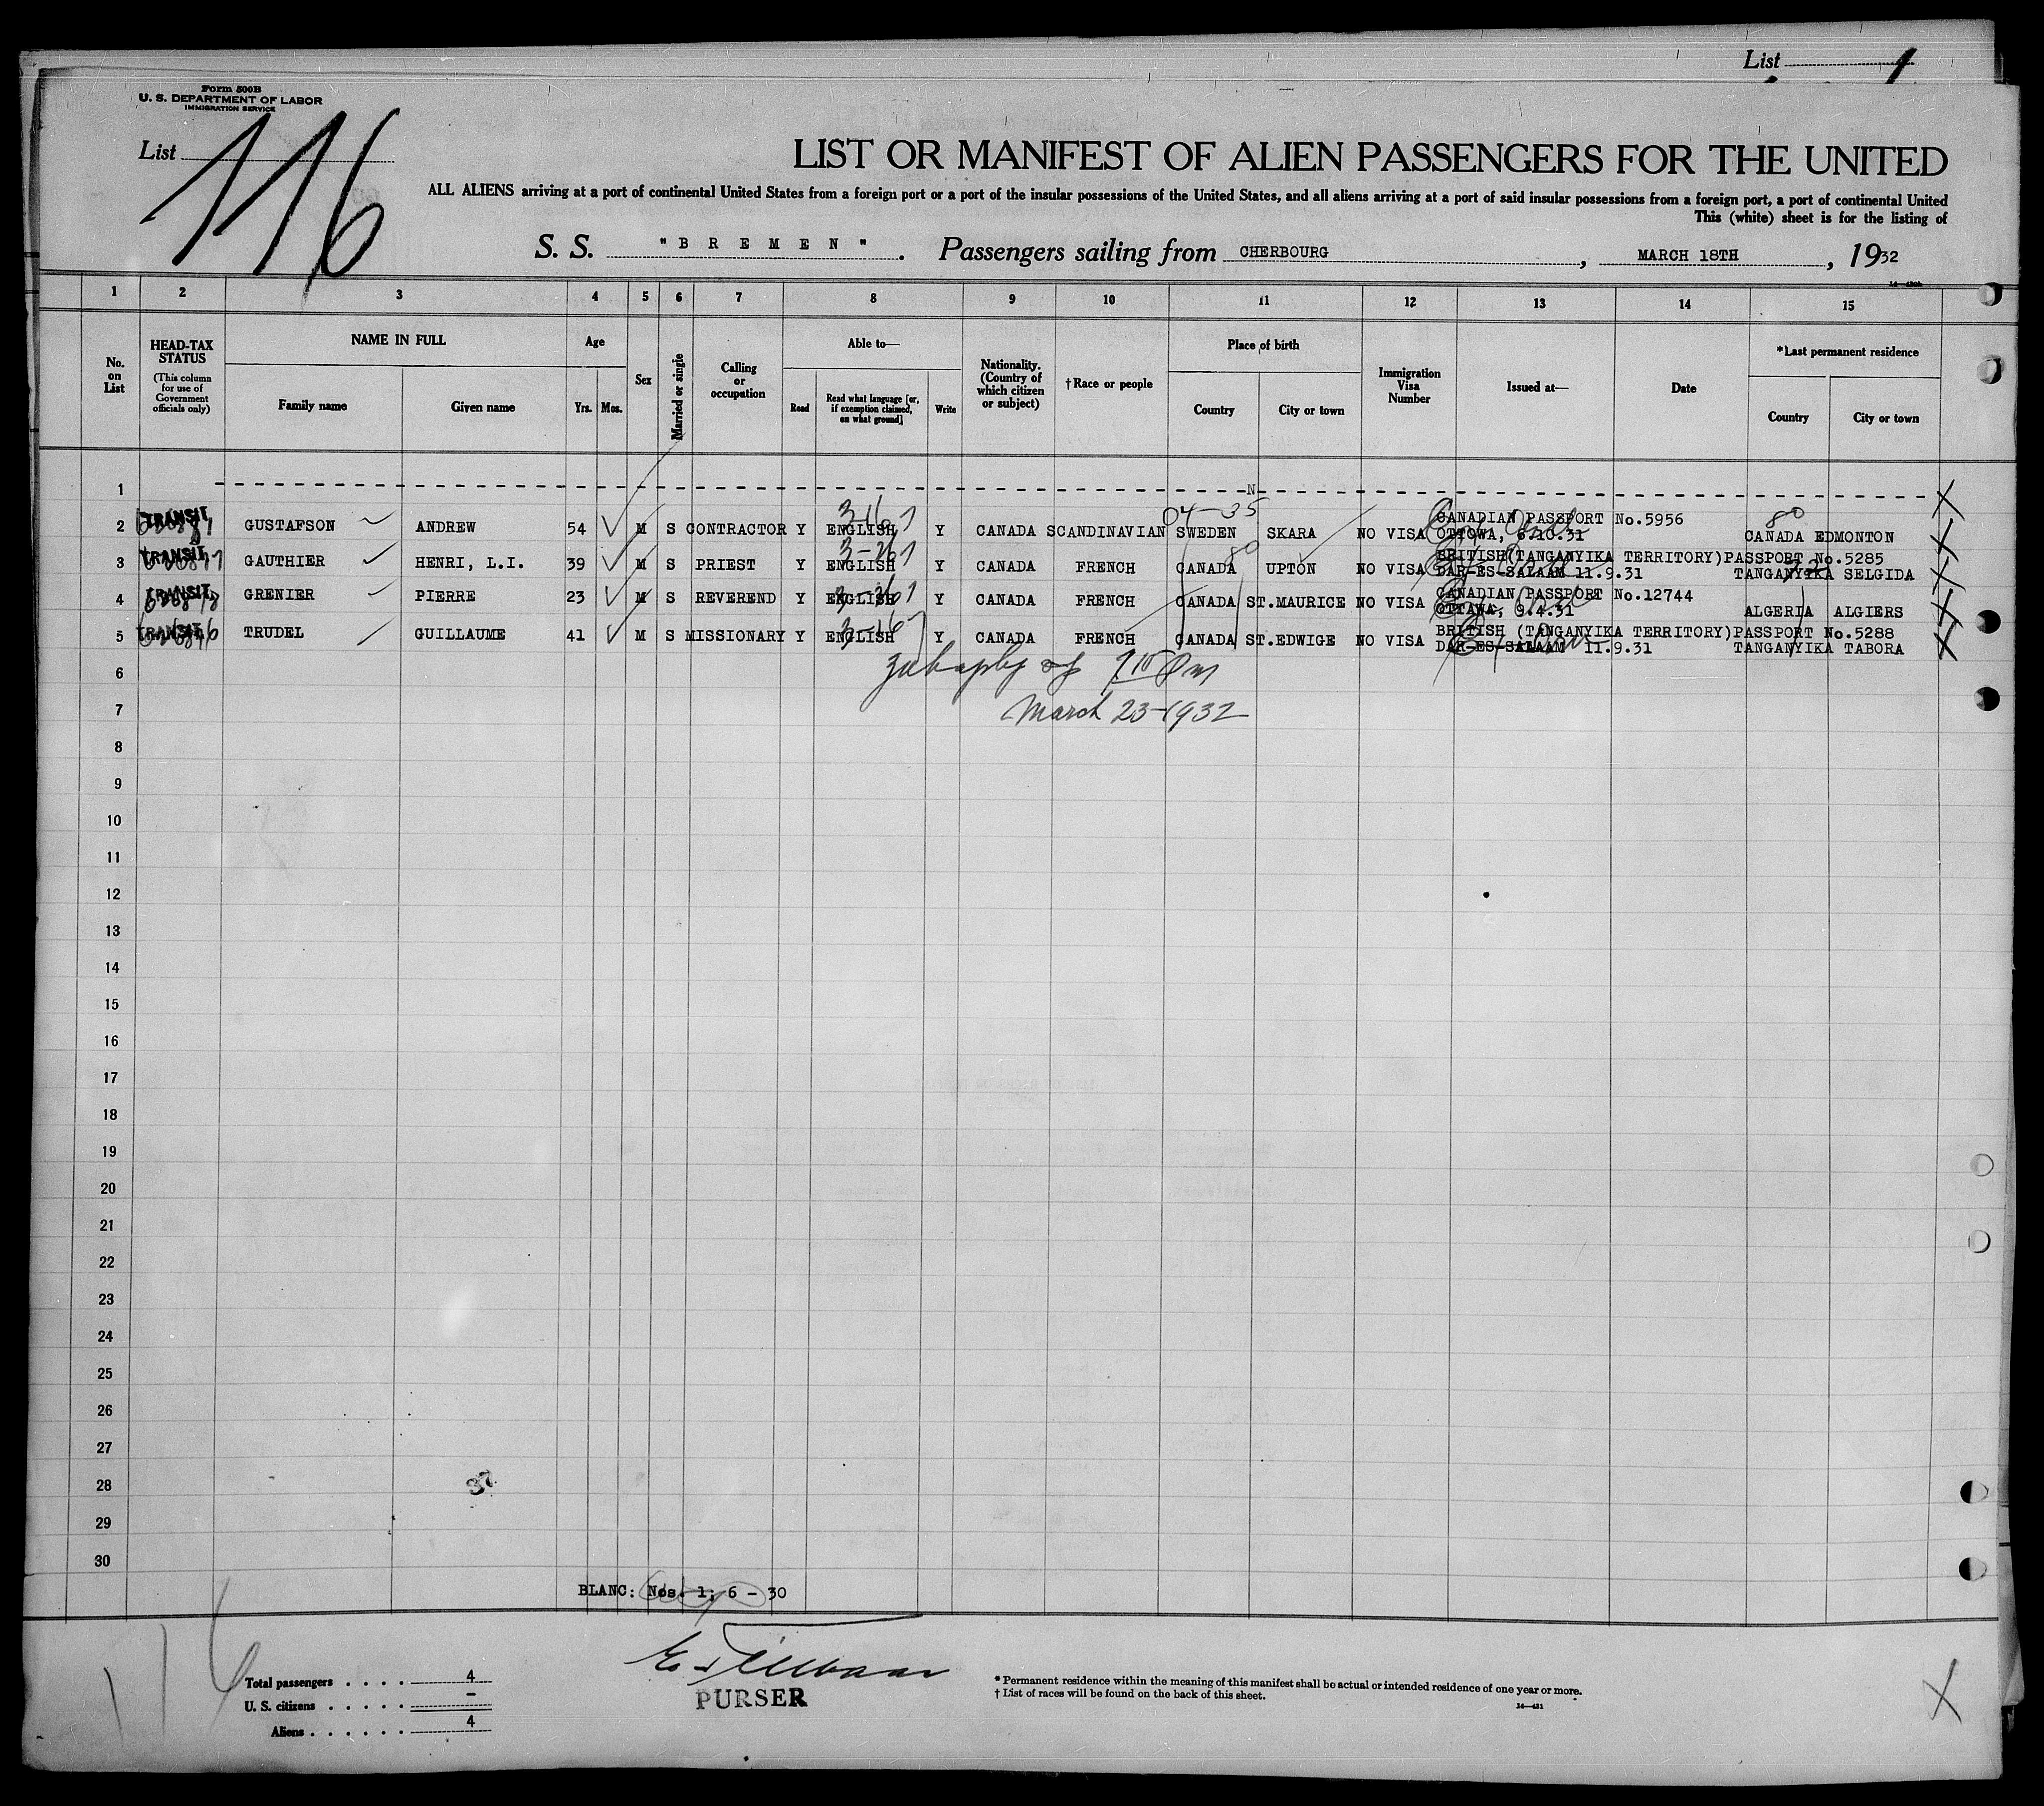 List 1
Form 500B
U. S. DEPARTMENT OF LABOR
IMMIGRATION SERVICE
List 116
LIST OR MANIFEST OF ALIEN PASSENGERS FOR THE UNITED
ALL ALIENS arriving at a port of continental United States from a foreign port or a port of the insular possessions of the United States, and all aliens arriving at a port of said insular possessions from a foreign port, a port of continental United
This (white) sheet is for the listing of
S. S. "BREMEN". Passengers sailing from CHERBOURG, MARCH 18TH, 1932
1 2 3 4 5 6 7 8 9 10 11 12 13 14 15
No. on List
HEAD-TAX STATUS (This column for use of Government officials only)
NAME IN FULL
Family name Given name
Age
Yrs. Mos.
Sex
Married or single
Calling or occupation
Able to—
Read Read what language [or, if exemption claimed, on what ground] Write
Nationality. (Country of which citizen or subject)
†Race or people
Place of birth
Country City or town
Immigration Visa Number
Issued at—
Date
*Last permanent residence
Country City or town
1 N
04-35
2 TRANSIT GUSTAFSON ANDREW 54 M S CONTRACTOR Y ENGLISH Y CANADA SCANDINAVIAN SWEDEN SKARA NO VISA CANADIAN PASSPORT No.5956
OTTOWA, 6.10.31 CANADA EDMONTON
3 TRANSIT GAUTHIER HENRI, L.I. 39 M S PRIEST Y ENGLISH Y CANADA FRENCH CANADA UPTON NO VISA BRITISH(TANGANYIKA TERRITORY)PASSPORT No.5285
DAR-ES-SALAAM 11.9.31 TANGANYIKA SELGIDA
4 TRANSIT GRENIER PIERRE 23 M S REVEREND Y ENGLISH Y CANADA FRENCH CANADA ST.MAURICE NO VISA CANADIAN PASSPORT No.12744
OTTAWA, 9.4.31 ALGERIA ALGIERS
5 TRANSIT TRUDEL GUILLAUME 41 M S MISSIONARY Y ENGLISH Y CANADA FRENCH CANADA ST.EDWIGE NO VISA BRITISH (TANGANYIKA TERRITORY)PASSPORT No.5288
DAR-ES-SALAAM 11.9.31 TANGANYIKA TABORA
6
7 March 23-1932
8
9
10
11
12
13
14
15
16
17
18
19
20
21
22
23
24
25
26
27
28
29
30
BLANC: Nos. 1; 6 - 30
116
Total passengers . . . . 4
U. S. citizens . . . . . -
Aliens . . . . . . 4
PURSER
* Permanent residence within the meaning of this manifest shall be actual or intended residence of one year or more.
† List of races will be found on the back of this sheet.
14—431